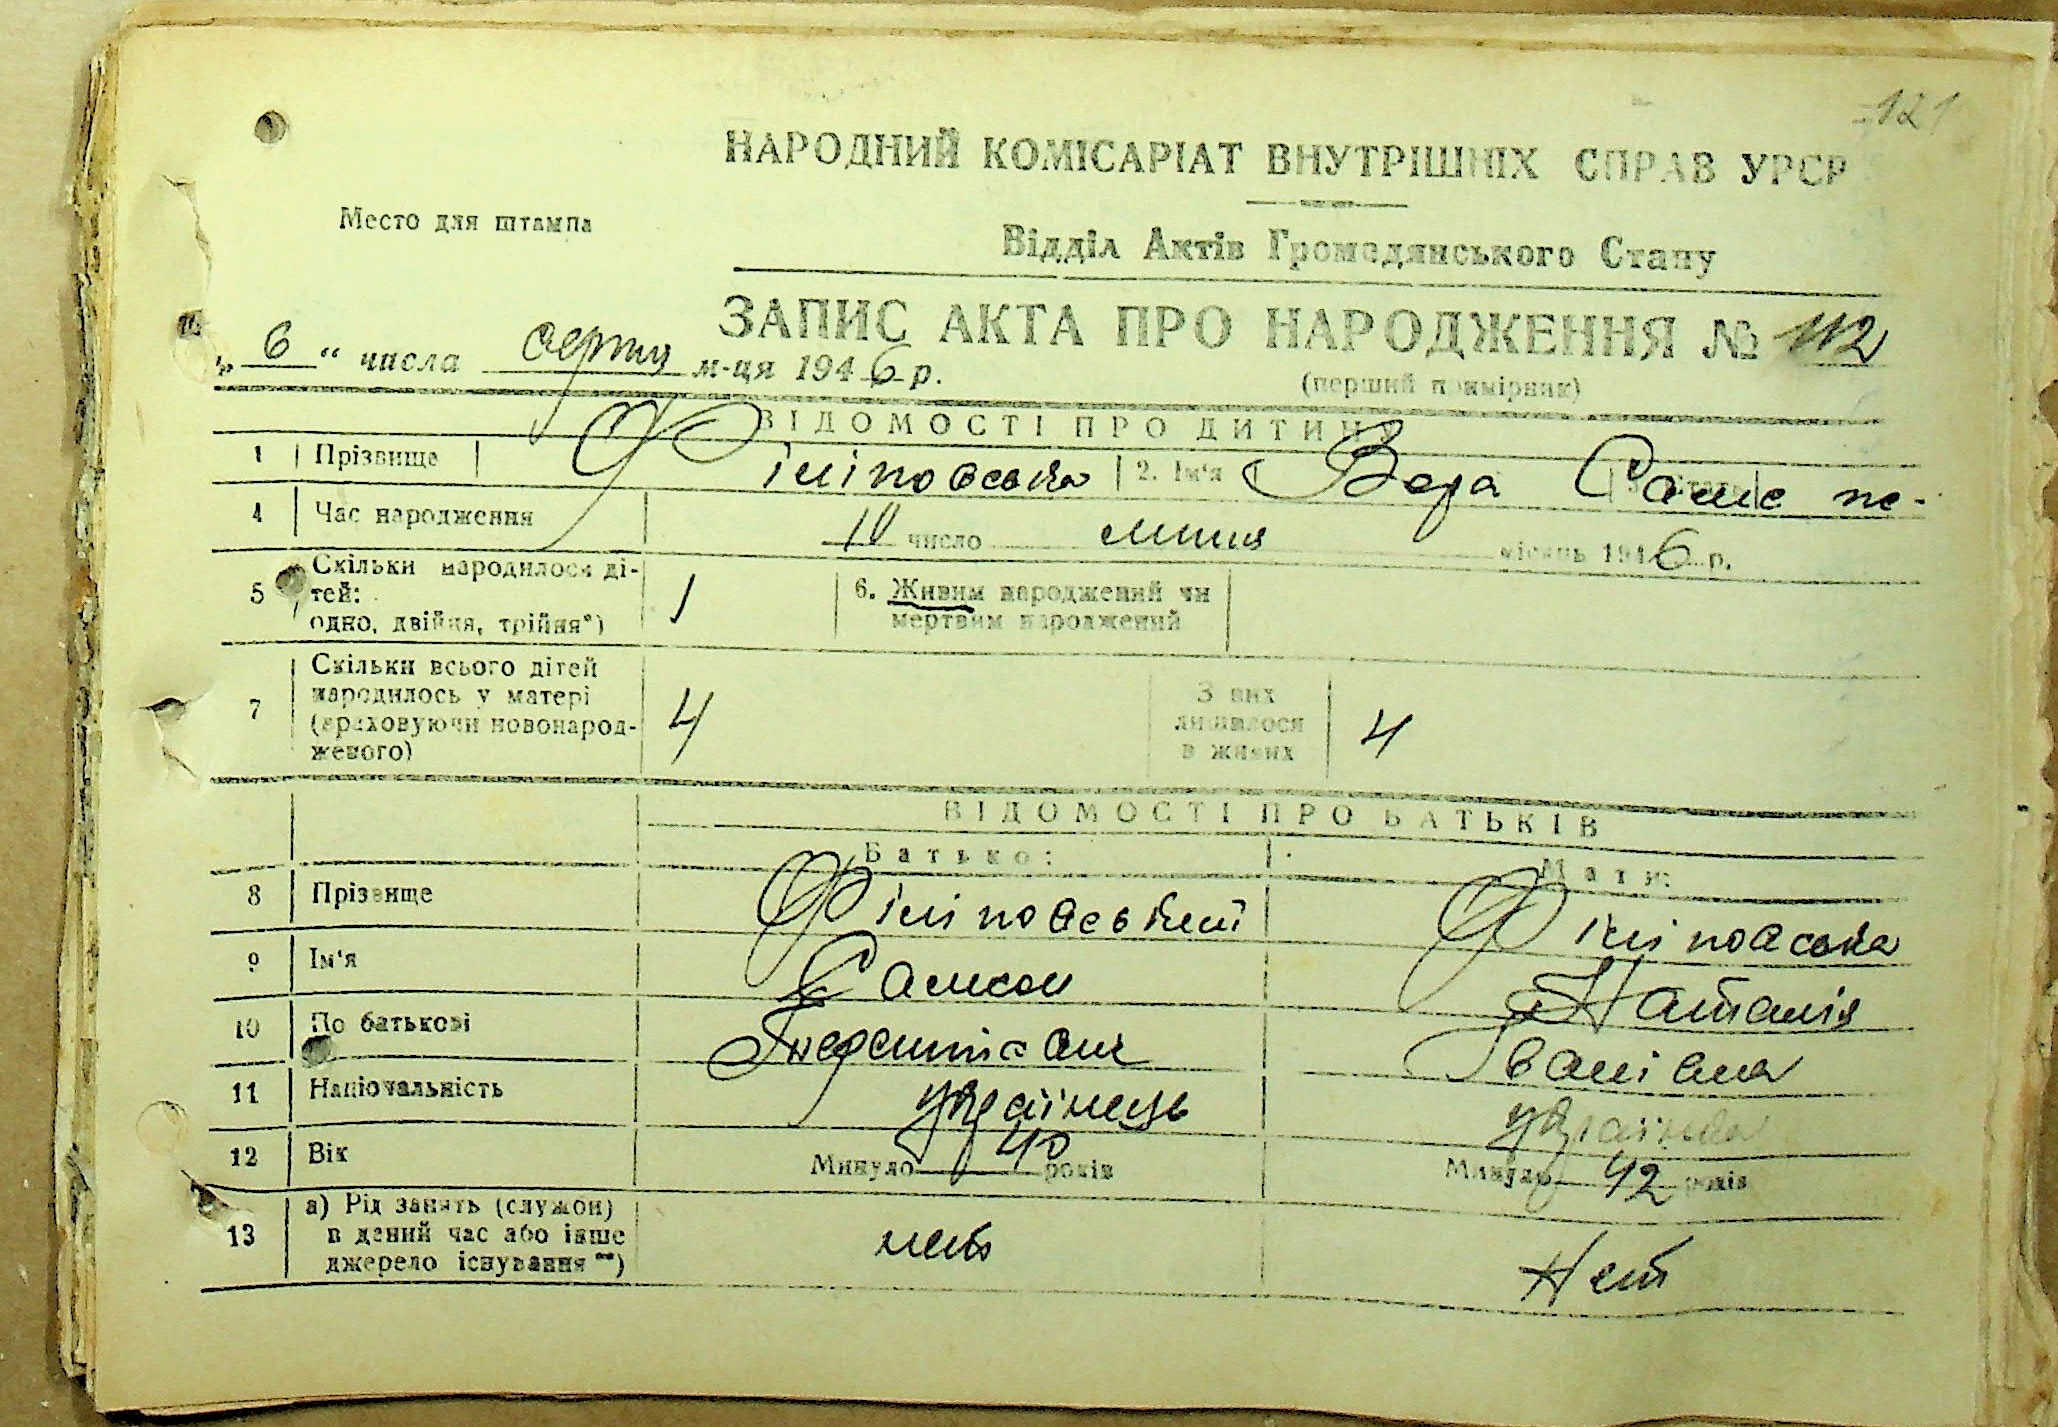 121
НАРОДНИЙ КОМІСАРІАТ ВНУТРІШНІХ СПРАВ УРСР
Место для штампа
Відділ Актів Громадянського Стану
ЗАПИС АКТА ПРО НАРОДЖЕННЯ № 112
„ 6 “ числа серпня м-ця 1946 р.
(перший примірник)
ВІДОМОСТІ ПРО ДИТИНУ
1 Прізвище Філіповська 2. Ім'я Вера
4 Час народження 10 число липня місяць 1946 р.
5 Скільки народилося ді-
тей:
одно, двійня, трійня*) 1
6. Живим народжений чи
мертвим народжений
7 Скільки всього дітей
народилось у матері
(враховуючи новонарод-
женого) 4
З них
лишилося
в живих 4
ВІДОМОСТІ ПРО БАТЬКІВ
Батько: Мати:
8 Прізвище Філіповський Філіповська
9 Ім'я Самсон Наталія
10 По батькові Івановна
11 Національність українець українка
12 Вік Минуло 40 років Минуло 42 років
13 а) Рід занять (служби)
в даний час або інше
джерело існування **) нет Нет